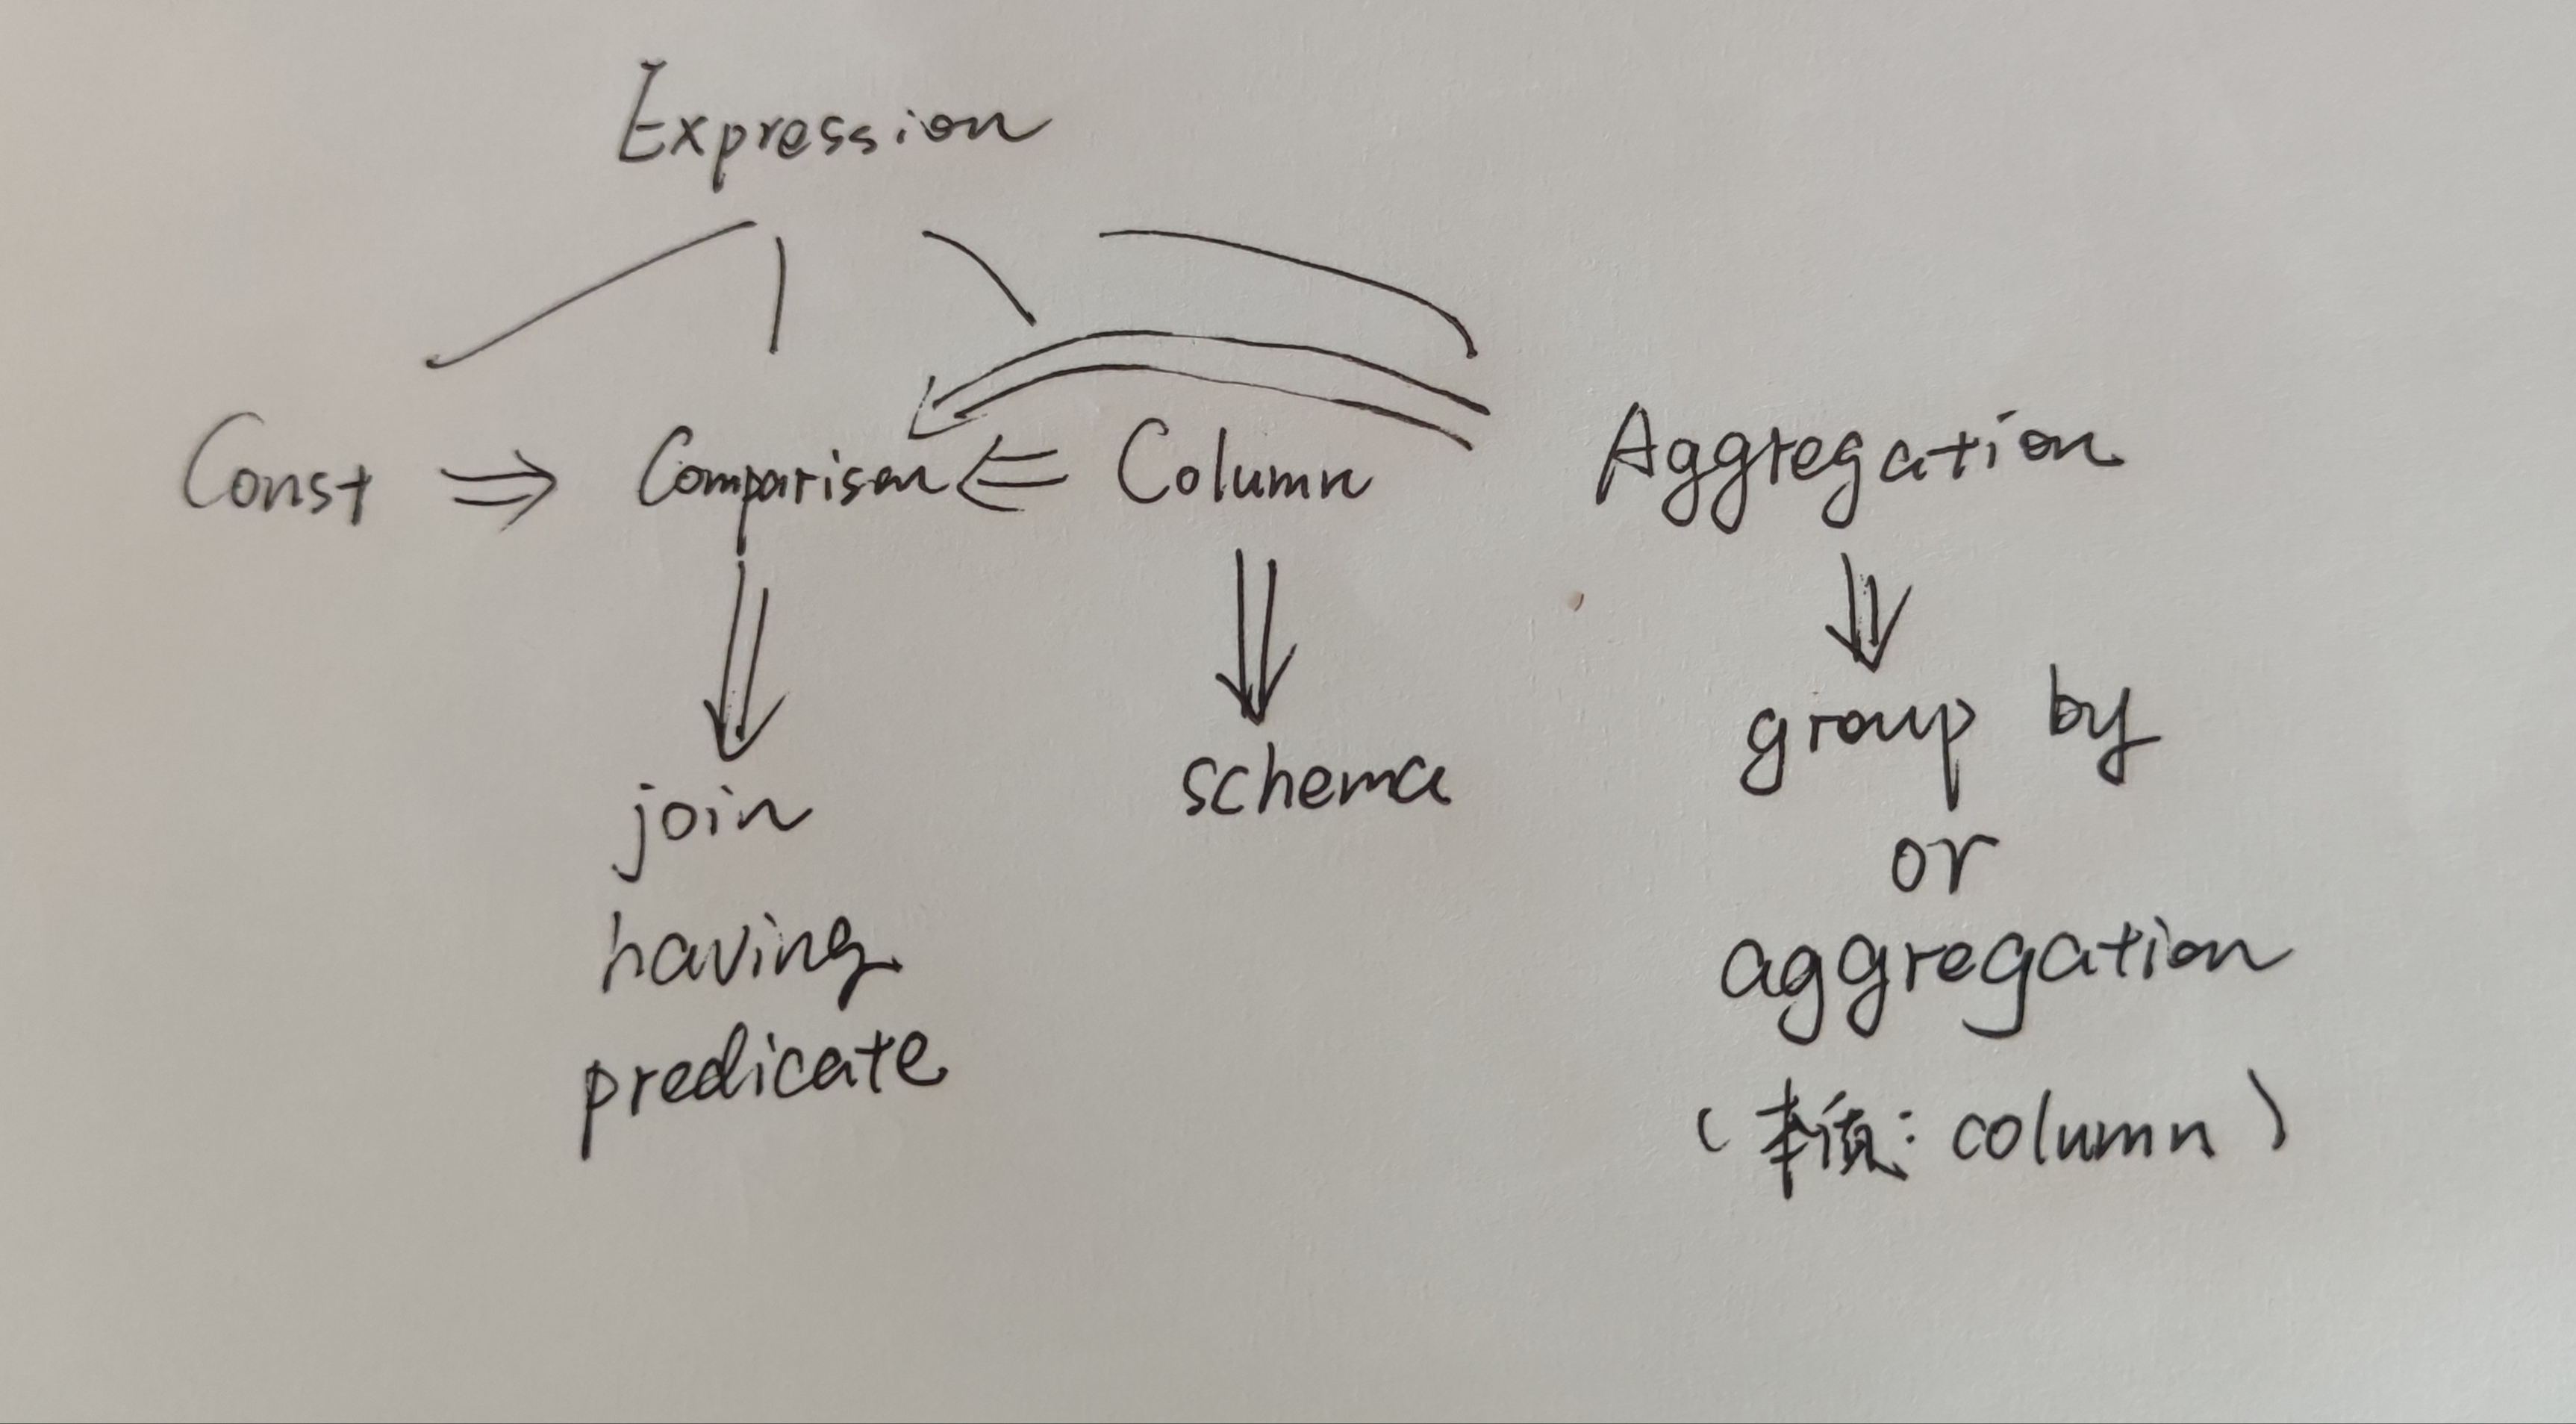 Expression
Const ⇒ Comparison ⇐ Column Aggregation
join
having
predicate
schema
group by
or
aggregation
(本质: column)